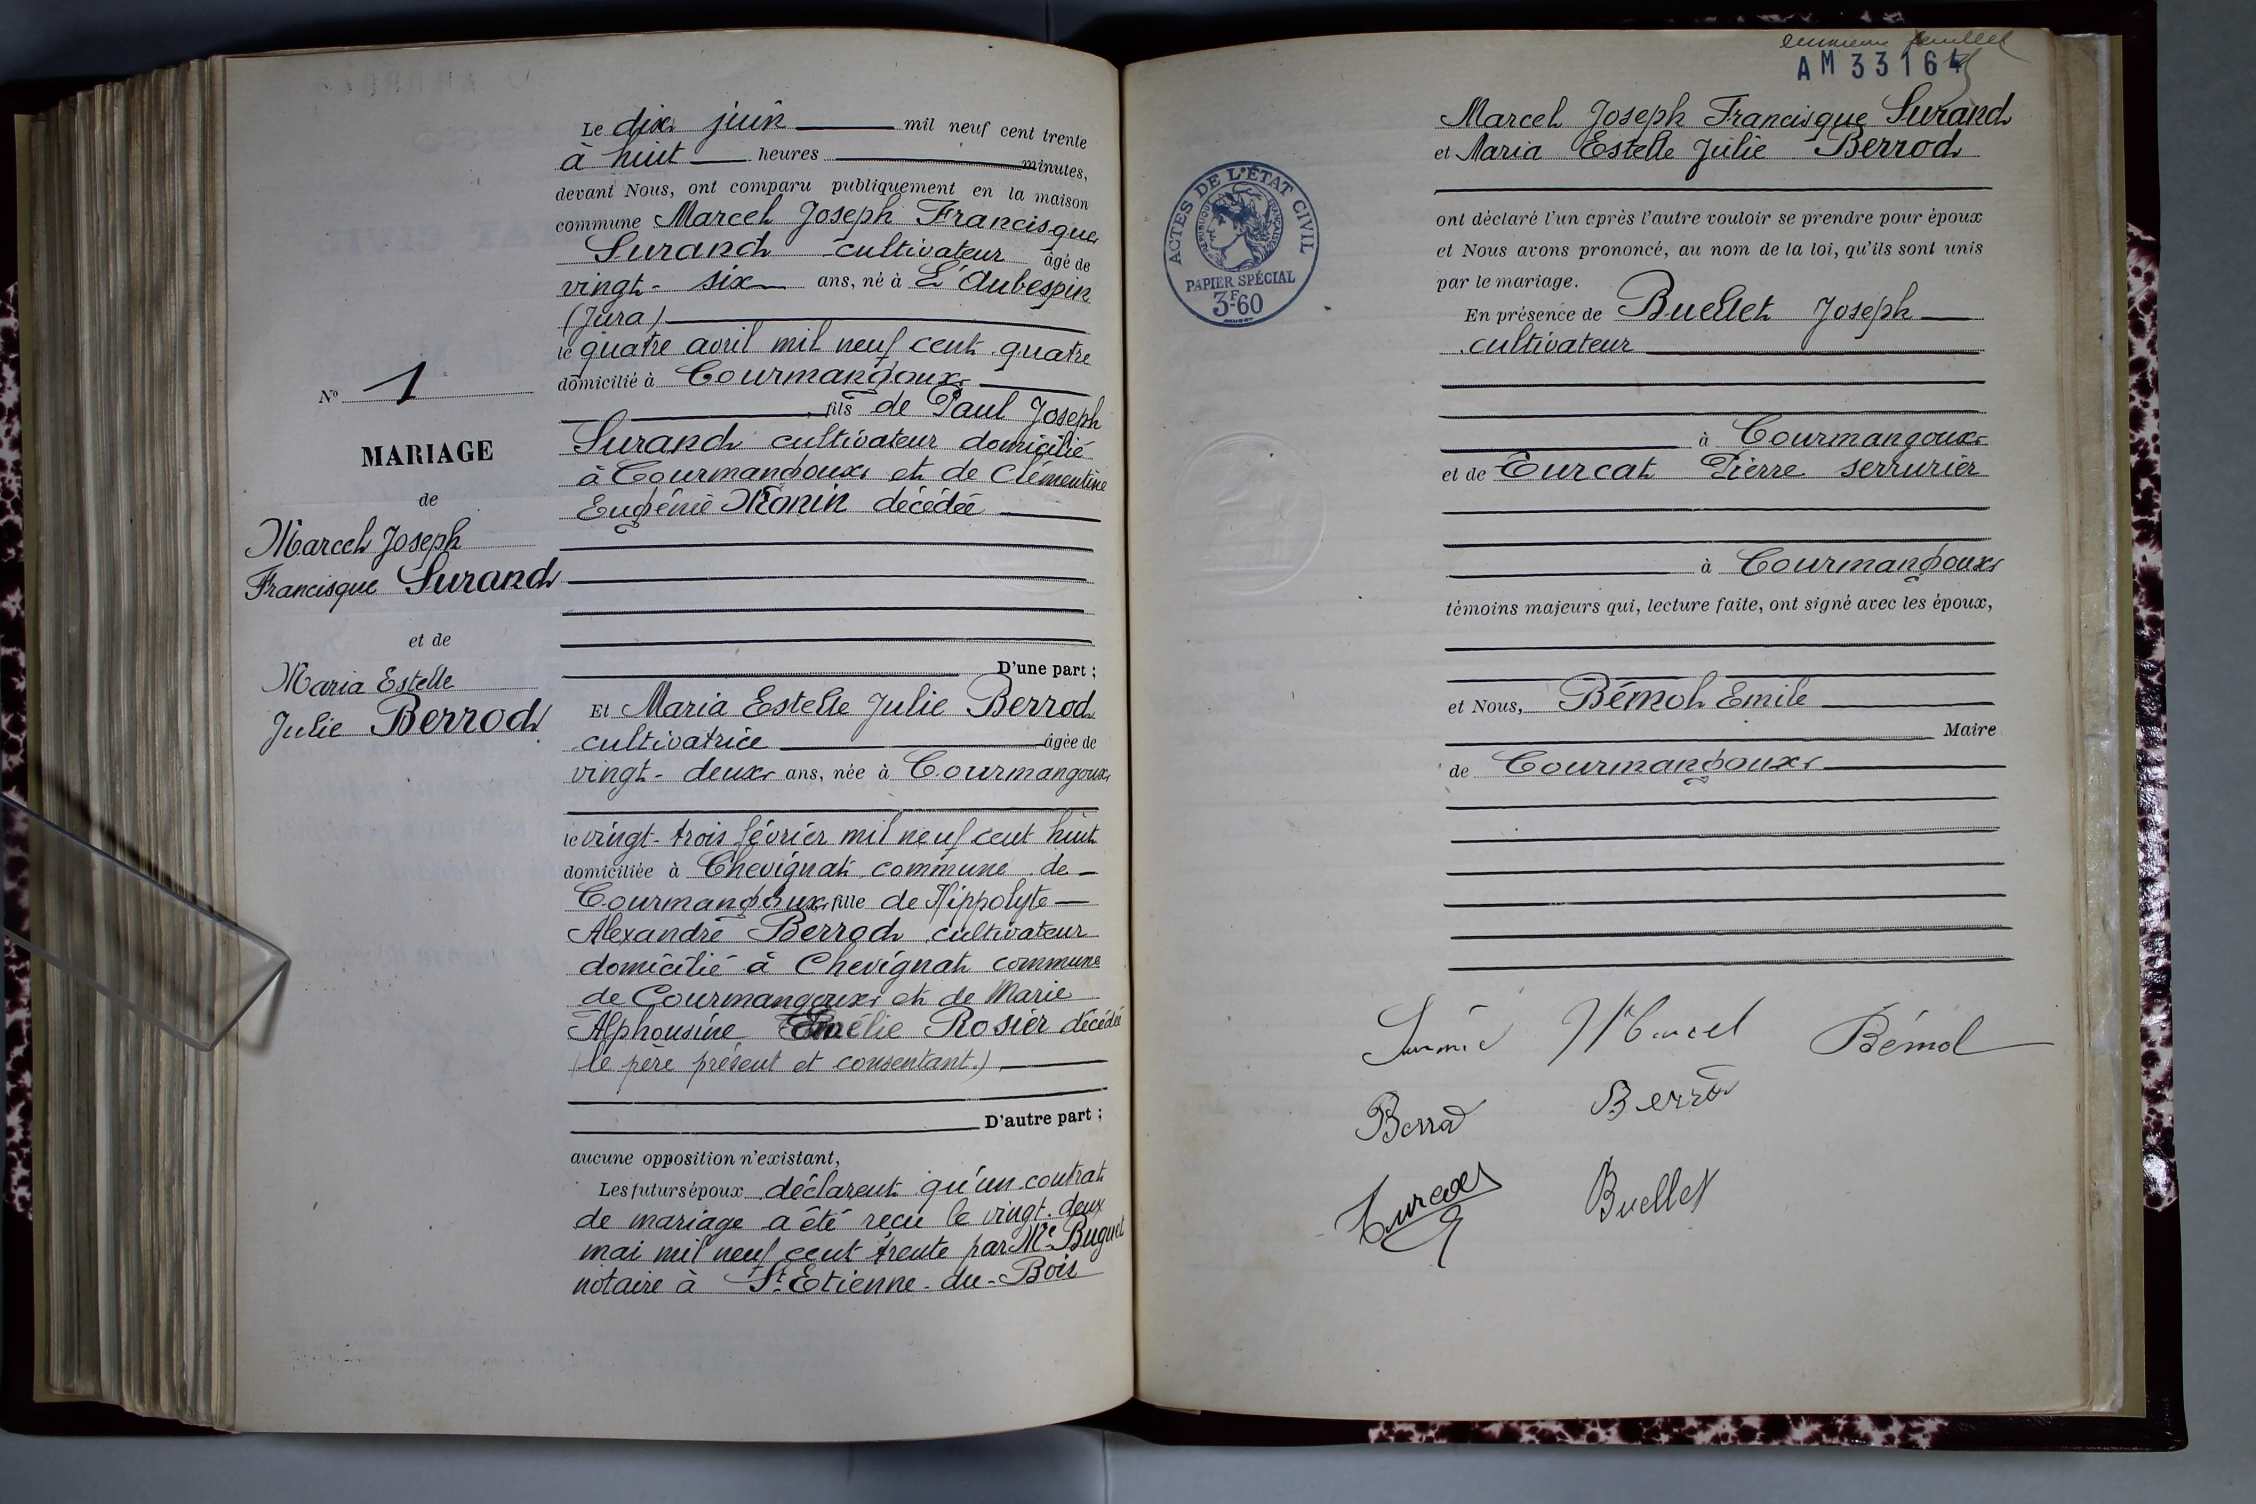 Le dix juin mil neuf cent trente
à huit heures minutes,
devant Nous, ont comparu publiquement en la maison
commune Marcel Joseph Francisque
Surand cultivateur âgé de
vingt-six ans, né à L'Aubespin
(Jura)
le quatre avril mil neuf cent quatre
domicilié à Courmangoux
fils de Paul Joseph
Surand cultivateur domicilié
à Courmangoux et de Clémentine
Eugénie Monin décédée
D'une part ;
Nº 1
MARIAGE
de
Marcel Joseph
Francisque Surand
et de
Maria Estelle
Julie Berrod
Et Maria Estelle Julie Berrod
cultivatrice âgée de
vingt-deux ans, née à Courmangoux
le vingt-trois février mil neuf cent huit
domiciliée à Chevignat commune de
Courmangoux fille de Hippolyte
Alexandre Berrod cultivateur
domicilié à Chevignat commune
de Courmangoux et de Marie
Alphonsine Emélie Rosier décédée
(le père présent et consentant.)
D'autre part ;
aucune opposition n'existant,
Les futurs époux déclarent qu'un contrat
de mariage a été reçu le vingt-deux
mai mil neuf cent trente par Me Buguet
notaire à St Etienne-du-Bois
feuillet
AM33164
ACTES DE L'ÉTAT CIVIL
RÉPUBLIQUE FRANÇAISE
PAPIER SPÉCIAL
3F60
Marcel Joseph Francisque Surand
et Maria Estelle Julie Berrod
ont déclaré l'un après l'autre vouloir se prendre pour époux
et Nous avons prononcé, au nom de la loi, qu'ils sont unis
par le mariage.
En présence de Buellet Joseph
cultivateur
à Courmangoux
et de Turcat Pierre serrurier
à Courmangoux
témoins majeurs qui, lecture faite, ont signé avec les époux,
et Nous, Bémol Emile
Maire
de Courmangoux
Marcel Bémol
Berrod Berrod
Turcat Buellet